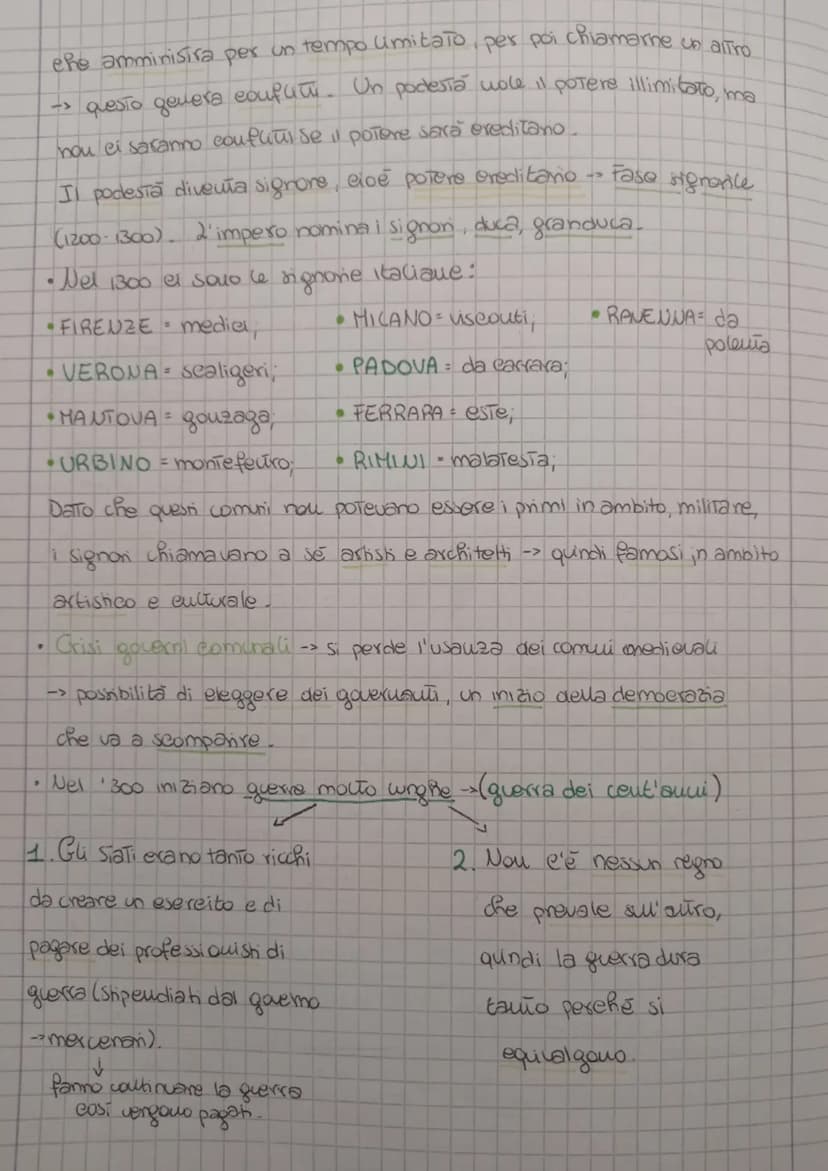 che amministra per un tempo limitato, per poi chiamarne un altro
→ questo genera conflitti. Un podestà vuole il potere illimitato, ma
non ci saranno conflitti se il potere sarà ereditario.
Il podestà diventa signore, cioè potere ereditario → fase signorile
(1200-1300). L'impero nomina i signori, duca, granduca.
• Nel 1300 ci sono le signorie italiane:
• FIRENZE = medici; • MILANO = visconti; • RAVENNA = da
polenta
• VERONA = scaligeri; • PADOVA = da carrara;
• MANTOVA = gonzaga; • FERRARA = este;
• URBINO = montefeltro; • RIMINI = malatesta;
Dato che questi comuni non potevano essere i primi in ambito, militare,
i signori chiamavano a sé artisti e architetti → quindi famosi in ambito
artistico e culturale.
• Crisi governi comunali → si perde l'usanza dei comuni medievali
→ possibilità di eleggere dei governanti, un inizio della democrazia
che va a scomparire.
• Nel '300 iniziano guerre molto lunghe → (guerra dei cent'anni)
1. Gli stati erano tanto ricchi
da creare un esercito e di
pagare dei professionisti di
guerra (stipendiati dal governo
→ mercenari).
↓
fanno continuare la guerra
così vengono pagati.
2. Non c'è nessun regno
che prevale sull'altro,
quindi la guerra dura
tanto perché si
equivalgono.